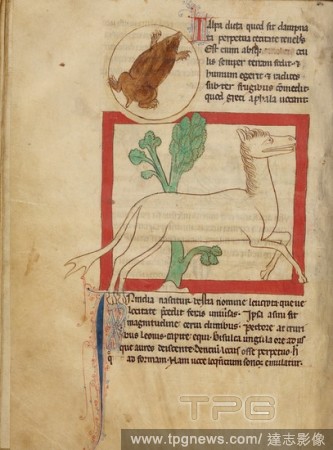 Talpa dicta quod sit dampna
ta perpetua cecitate tenebris
Est enim absque
lis semper terram fodit et
humum egerit et radices
subter frugibus comedit
quod greci aphala vocant
India nascitur bestia nomine
locitate precedit feras universas. Ipsa asini est
magnitudine cervi clunibus. Pectore ac cruri
bus leonis capite equi. Bisulca ungula ore
que aures
ad formam. Nam voce loquentium sonos emulatur.
TPG
www.tpgnews.com / 達志影像